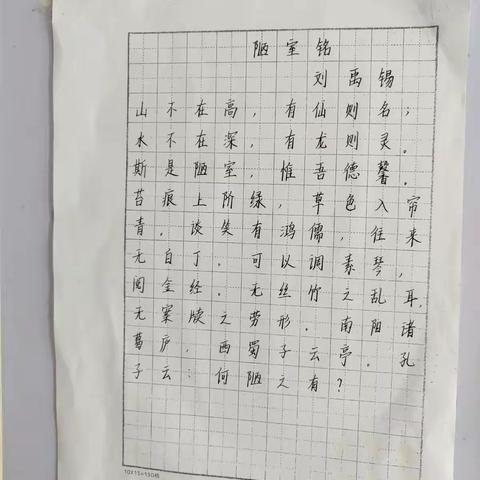 陋室铭
刘禹锡
山不在高，有仙则名；
水不在深，有龙则灵。
斯是陋室，惟吾德馨。
苔痕上阶绿，草色入帘
青。谈笑有鸿儒，往来
无白丁。可以调素琴，
阅金经。无丝竹之乱耳，
无案牍之劳形。南阳诸
葛庐，西蜀子云亭。孔
子云：何陋之有？
10X15=150格